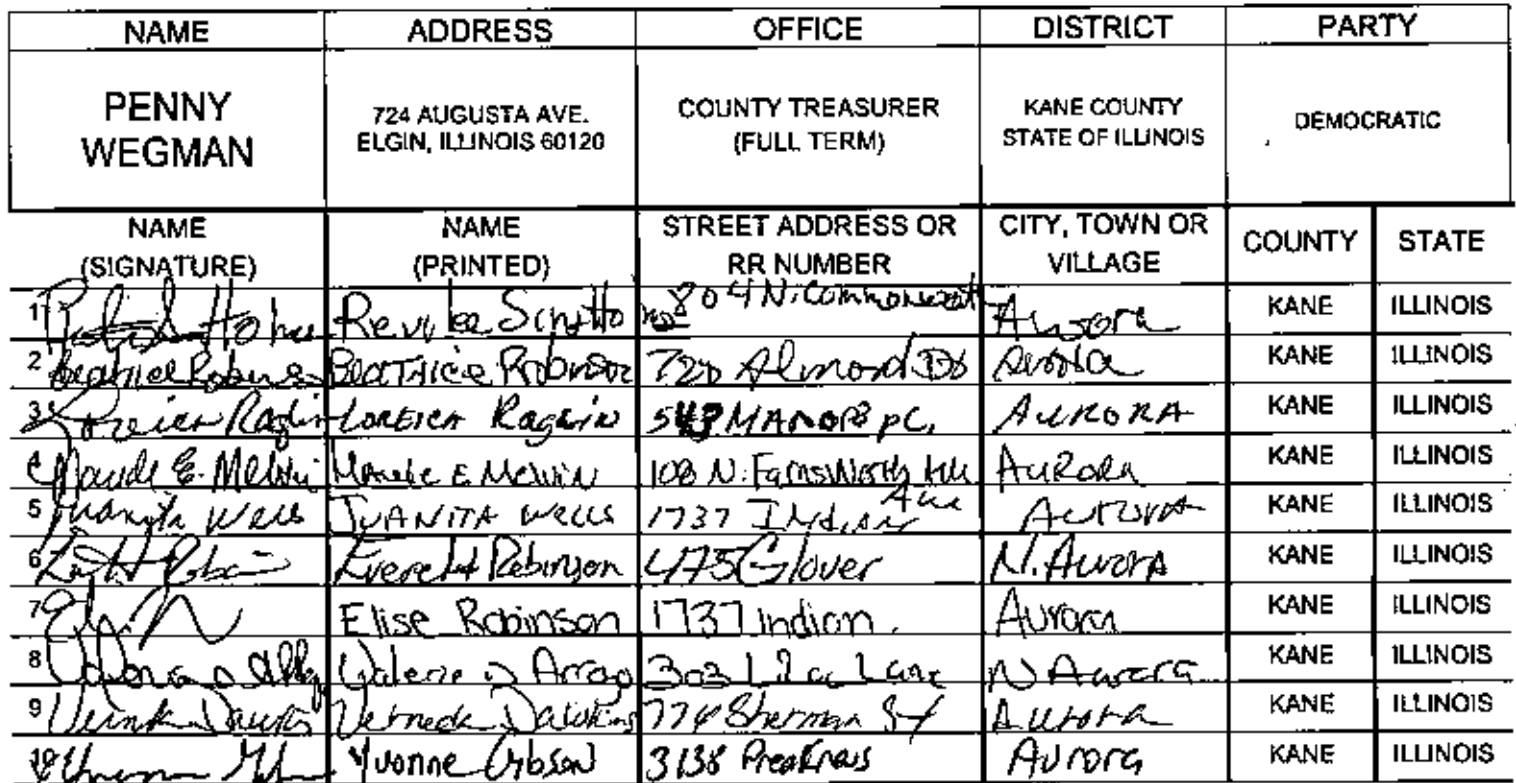 NAME ADDRESS OFFICE DISTRICT PARTY
PENNY WEGMAN 724 AUGUSTA AVE. ELGIN, ILLINOIS 60120 COUNTY TREASURER (FULL TERM) KANE COUNTY STATE OF ILLINOIS DEMOCRATIC
NAME (SIGNATURE) NAME (PRINTED) STREET ADDRESS OR RR NUMBER CITY, TOWN OR VILLAGE COUNTY STATE
1 804 N. Aurora KANE ILLINOIS
2 Beatrice Robinson 720 Almond Aurora KANE ILLINOIS
3 MANOR PL, AURORA KANE ILLINOIS
4 Maude E. Melvin Maude E Melvin 108 N. Farnsworth Aurora KANE ILLINOIS
5 Juanita Wells JUANITA Wells 1737 Indian Ave Aurora KANE ILLINOIS
6 Everett Robinson 475 Glover N. Aurora KANE ILLINOIS
7 Elise Robinson 1737 Indian. Aurora KANE ILLINOIS
8 Valerie 303 Lilac Lane N Aurora KANE ILLINOIS
9 774 Sherman St Aurora KANE ILLINOIS
10 Yvonne Gibson 3138 Preakness Aurora KANE ILLINOIS